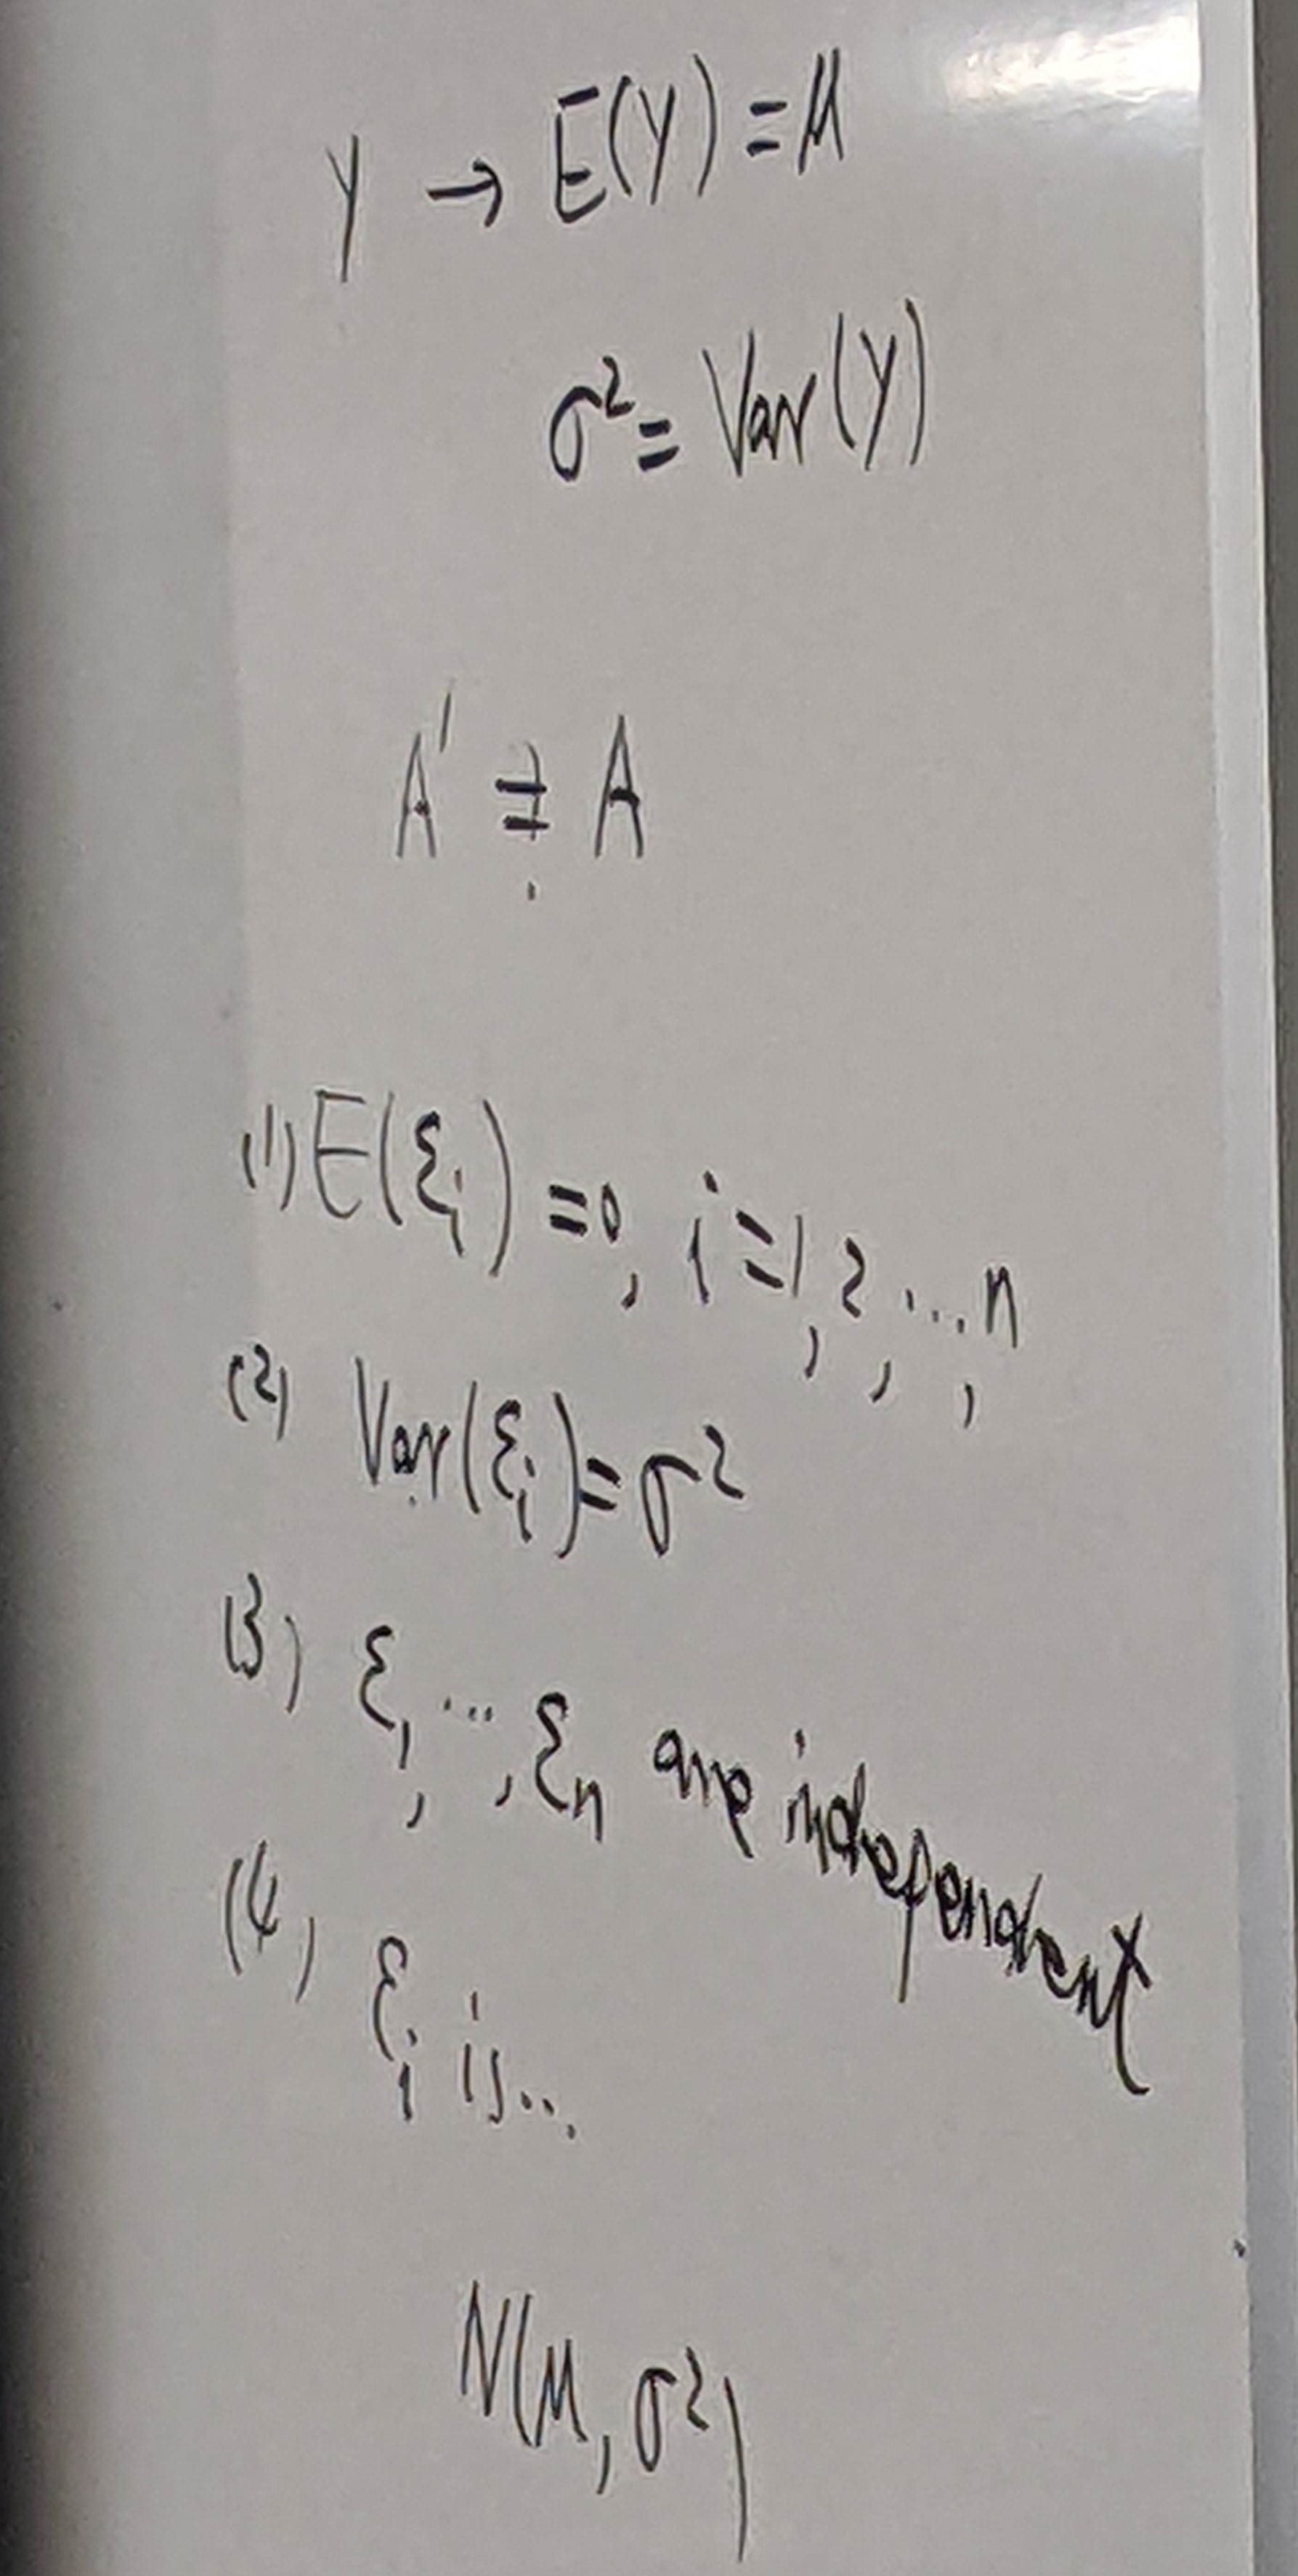 Y → E(Y) = μ
σ² = Var(Y)
A' ≟ A
(1) E(ε_i) = 0, i = 1, 2, ..., n
(2) Var(ε_i) = σ²
(3) ε_1, ..., ε_n are independent
(4) ε_i is...
N(μ, σ²)